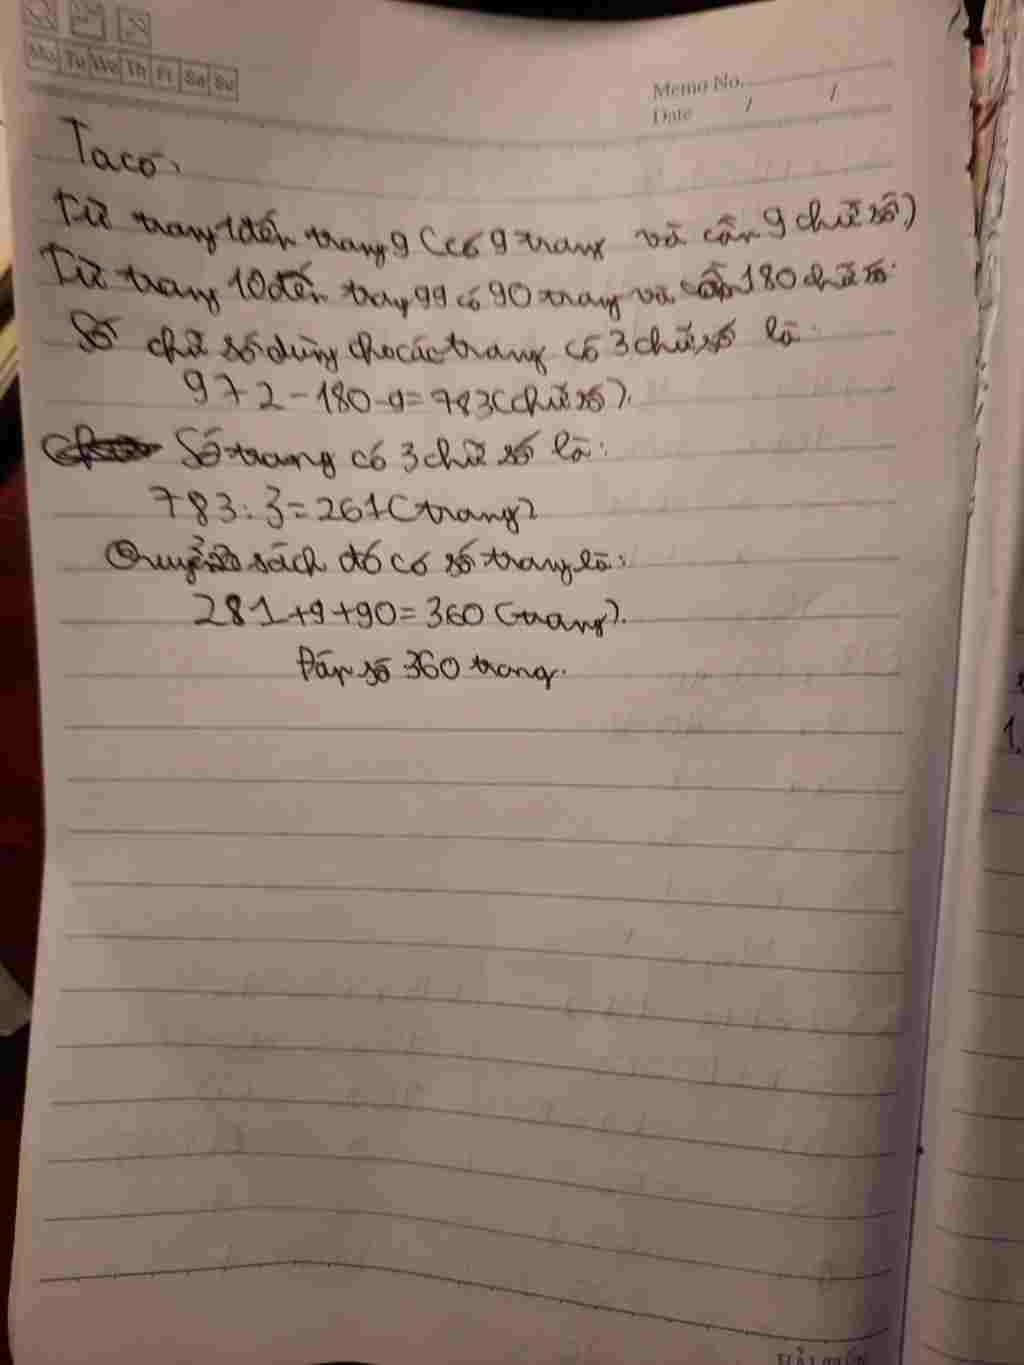 Mo Tu We Th Fr Sa Su
Memo No.
Date / /
Ta có
Từ trang 1 đến trang 9 (có 9 trang và cần 9 chữ số)
Từ trang 10 đến trang 99 có 90 trang và cần 180 chữ số.
Số chữ số dùng cho các trang có 3 chữ số là:
972-180-9=783(chữ số).
Số trang có 3 chữ số là:
783:3=261(trang)
Quyển sách đó có số trang là:
281+9+90=360 (trang).
Đáp số 360 trang.
1.